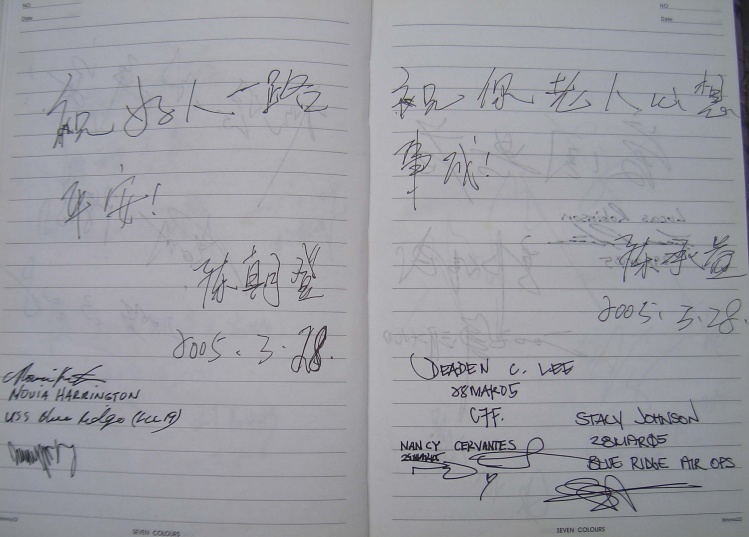 NO
Date
祝好人一路
平安!
2005.3.28.
NOVIA HARRINGTON
USS Blue Ridge (LCC 19)
SEVEN COLOURS
NO
Date
祝你老人心想
事成!
2005.3.28.
DEADEN C. LEE
28MAR05
C7F.
NANCY CERVANTES
28MAR05
STACY JOHNSON
28MAR05
BLUE RIDGE AIR OPS
SEVEN COLOURS